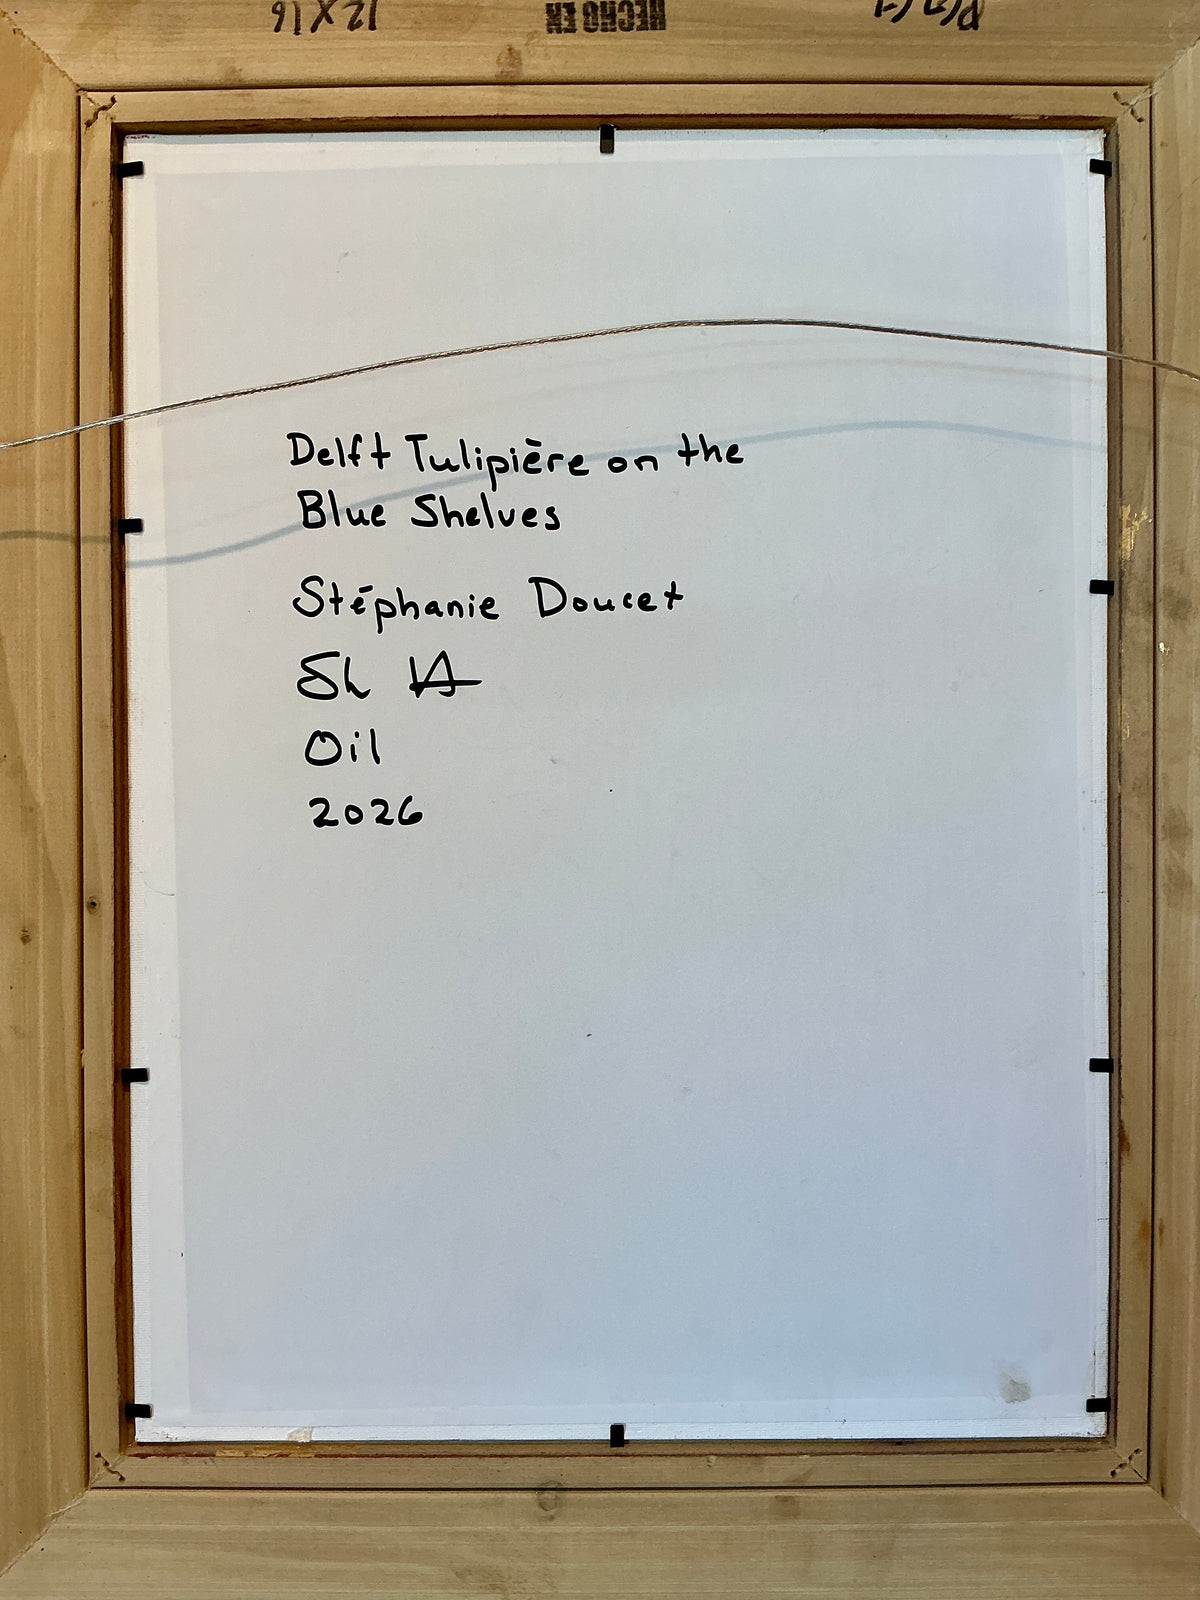 12 X 16
HECHO EN
Delft Tulipière on the
Blue Shelves
Stéphanie Doucet
Oil
2026